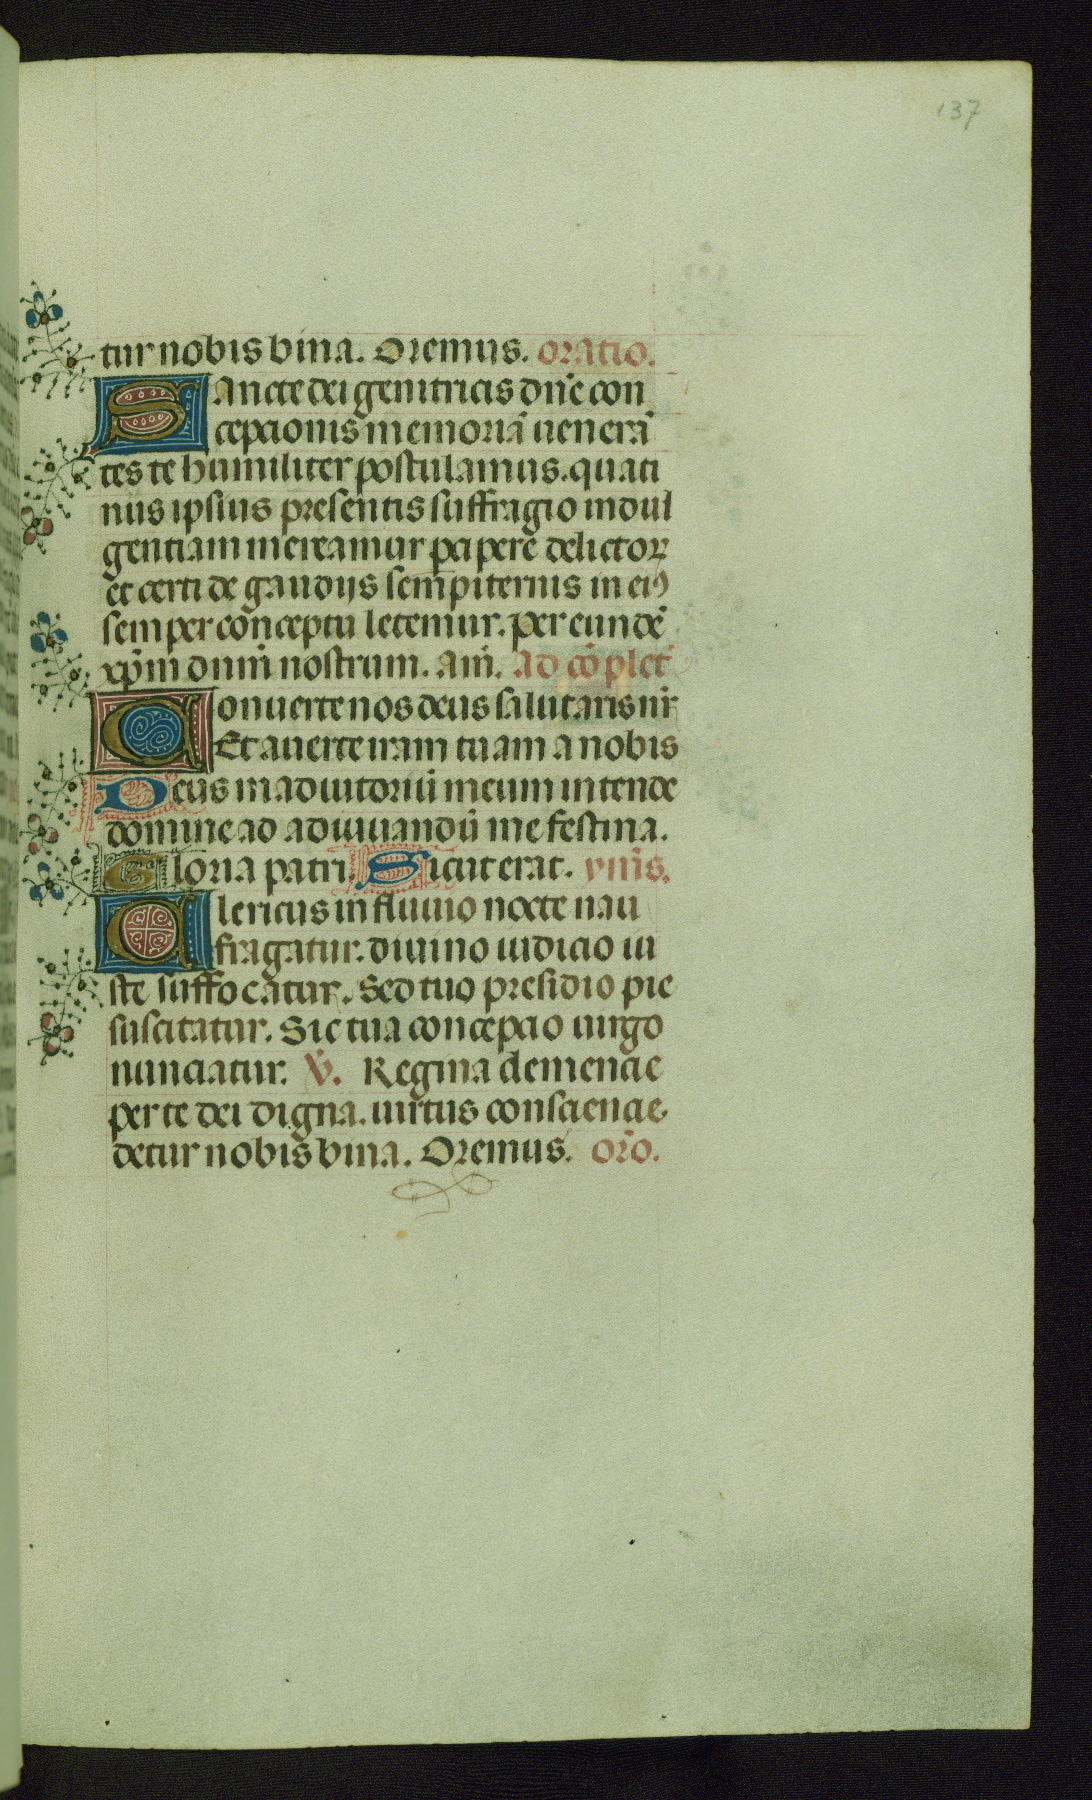 137
tur nobis bina. Oremus. oratio.
Sancte dei genitricis dn̄e con
cepcionis memoriā uenerā
tes te humiliter postulamus. quati
nus ipsius presentis suffragio indul
gentiam mereamur pcipere delictoꝝ
et certi de gaudijs sempiternis in eiꝰ
semper conceptu letemur. per eundē
xp̄m dnm̄ nostrum. am̄. ad cōplet̄
Conuerte nos deus salutaris nr̄
Et auerte iram tuam a nobis
Deus in adiutoriū meum intende
domine ad adiuuandū me festina.
Gloria patri. Sicut erat. ymis.
Clericus in fluuio nocte nau
fragatur. diuino iudicio iu
ste suffocatur. Sed tuo presidio pie
suscitatur. Sic tua concepcio uirgo
nunciatur. V̄. Regina clemencie
per te dei digna. uirtus consciencie
detur nobis bina. Oremus. orō.